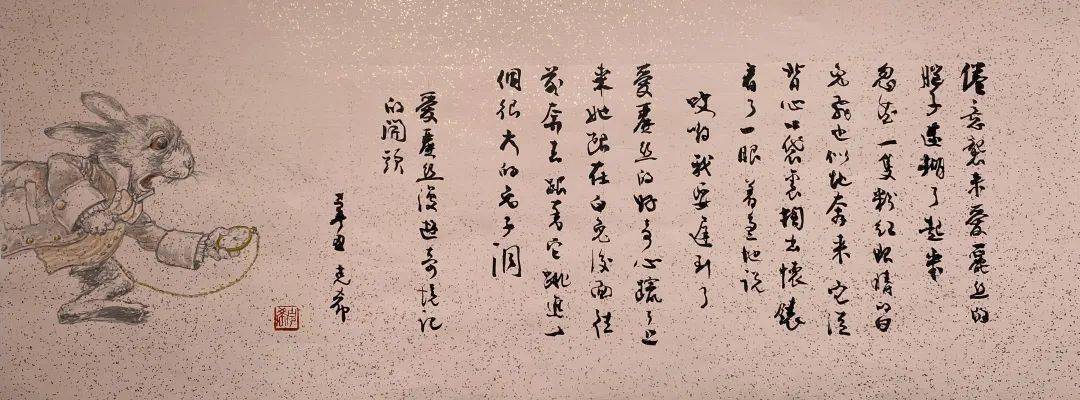 倦意襲来愛麗丝的
腦子迷糊了起来
忽然一隻粉红眼睛的白
兔飛也似地奔来它從
背心口袋裏掏出懷錶
看了一眼着急地説
哎喲我要遲到了
愛麗丝的好奇心躥了上
来她跟在白兔後面往
前奔去跟着它跳進一
個很大的兔子洞
愛麗丝漫遊奇境记
的開頭
辛丑 克希